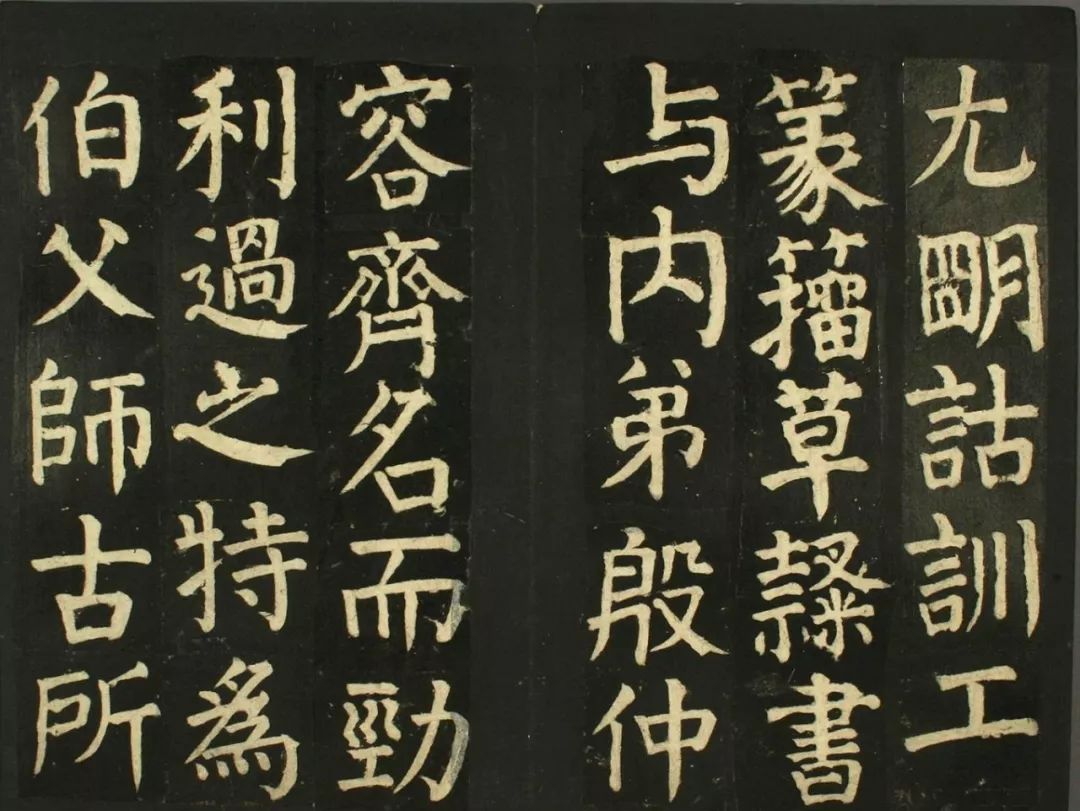 尢明詁訓工
篆籀草隸書
与内弟殷仲
容齊名而勁
利過之特爲
伯父師古所